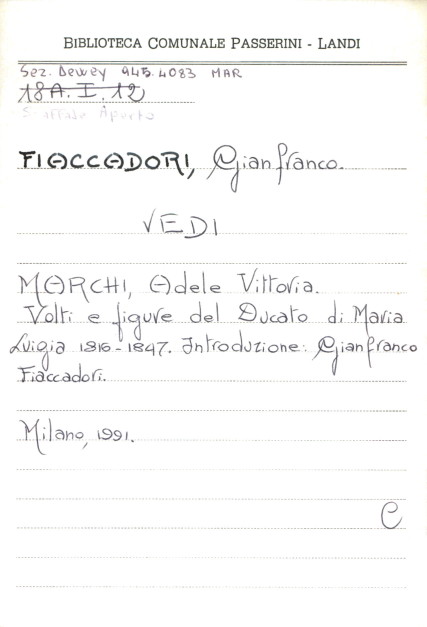 BIBLIOTECA COMUNALE PASSERINI - LANDI
Sez. Dewey 945.4083 MAR
18A.I.12
Scaffale Aperto
FIACCADORI, Gianfranco.
VEDI
MARCHI, Adele Vittoria.
Volti e figure del Ducato di Maria
Luigia 1816-1847. Introduzione: Gianfranco
Fiaccadori.
Milano, 1991.
C